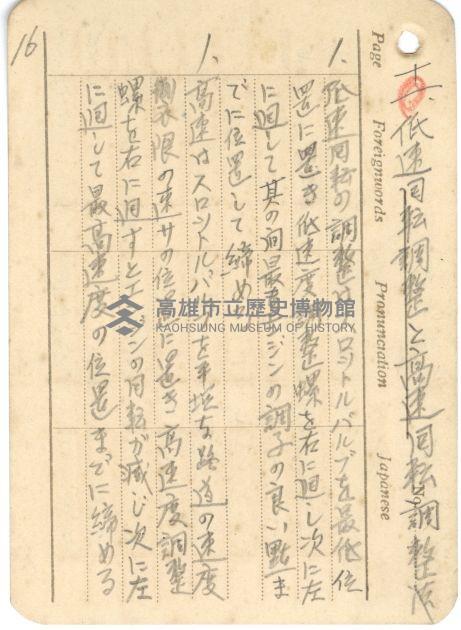 十一. 低速回転調整と高速回転調整法
Page Foreignwords Pronunciation Japanese
No.
1. 低速回転の調整はスロットルバルブを最低位
置に置き低速度調整螺を右に廻し次に左
に廻して其の間最もエンジンの調子の良い點ま
でに位置して締める
1. 高速はスロットルバルブを平坦な路道の速度
制限の速サの位置に置き高速度調整
螺を右に廻すとエンジンの回転が減じ次に左
に廻して最高速度の位置までに締める
16
高雄市立歷史博物館
KAOHSIUNG MUSEUM OF HISTORY